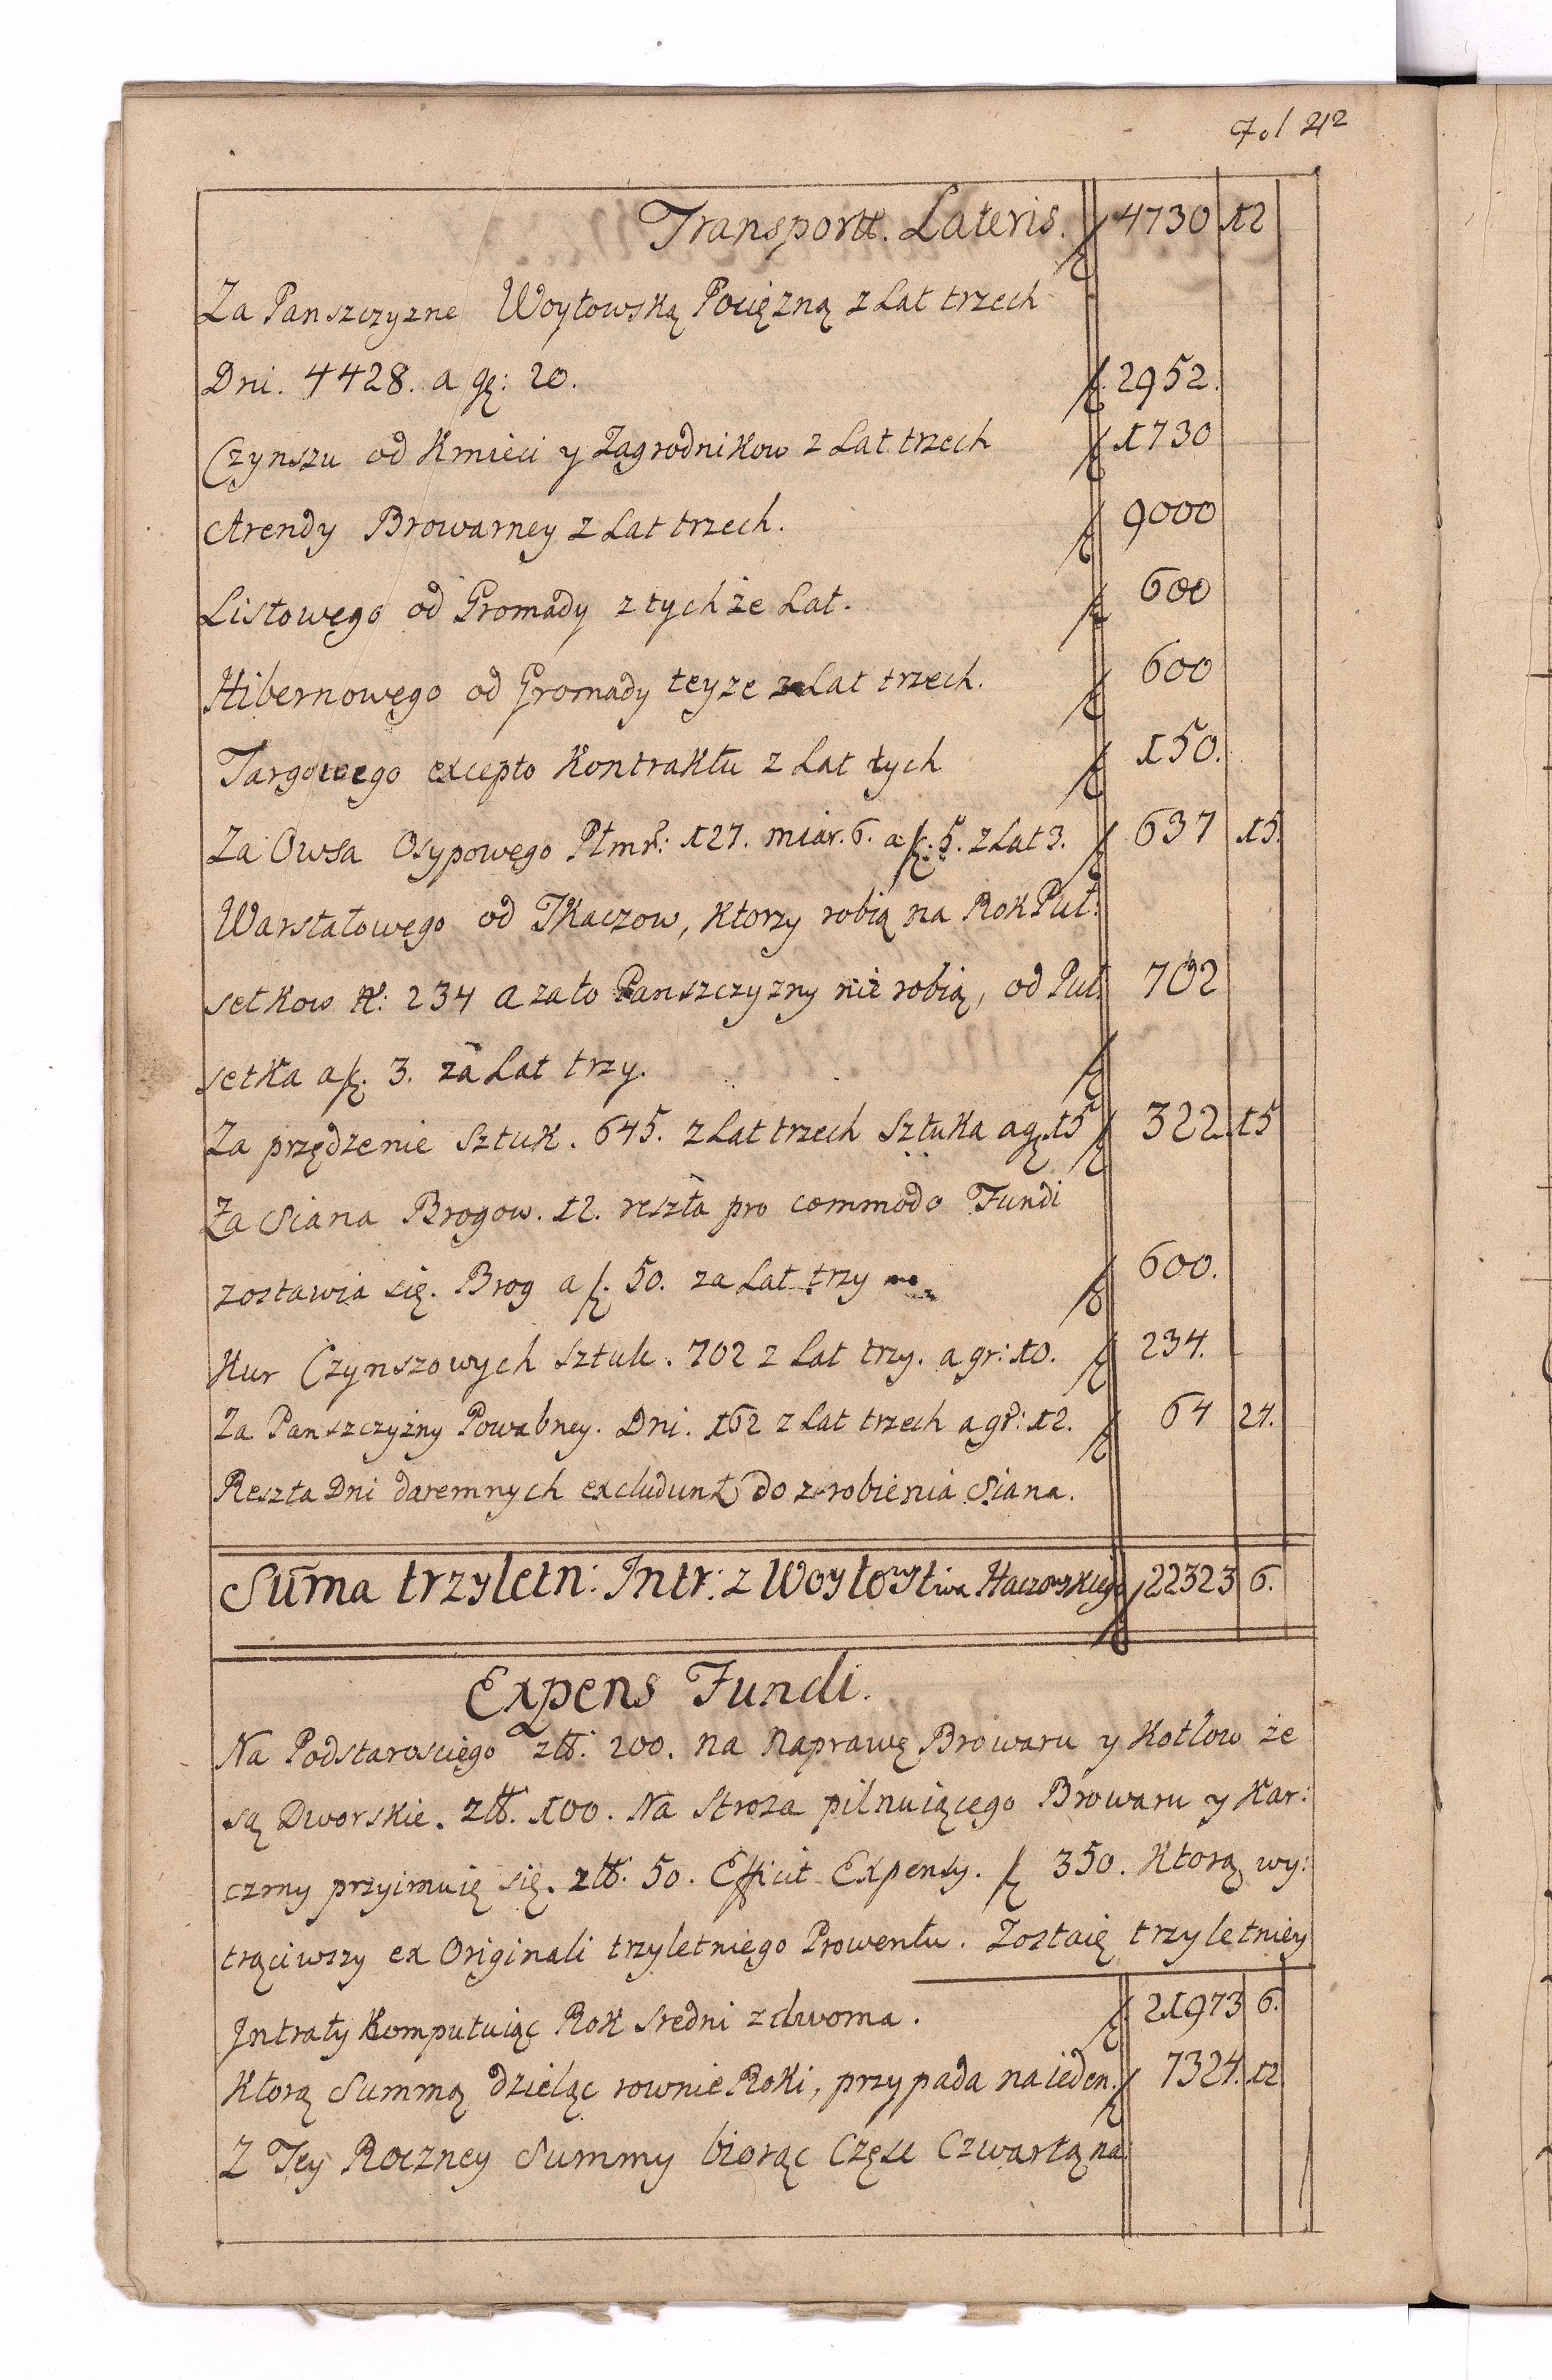 Fol 212
Transportt. Lateris. f 4730 12
Za Panszczyzne Woytowską Pociężną z Lat trzech
Dni. 4428. a gr: 20. f. 2952.
Czynszu od Kmieci y Zagrodnikow z Lat trzech f 1730
Arendy Browarney z Lat trzech. f 9000
Listowego od Gromady z tychże Lat. f 600
Hibernowego od Gromady teyze z Lat trzech. f 600
Targowego excepto Kontraktu z Lat tych f 150.
Za Owsa Osypowego Płmr: 127. miar. 6. a f. 5. z Lat 3. f 637 15.
Warstatowego od Tkaczow, Ktorzy robią na Rok Puł:
setkow N: 234 a zato Panszczyzny nie robią, od Puł: 702
setka a f. 3. za Lat trzy. f
Za przędzenie Sztuk. 645. z Lat trzech Sztuka a g. 15 f 322. 15
Za Siana Brogow. 12. reszta pro commodo Fundi
zostawia się. Brog a f. 50. za Lat trzy f 600.
Kur Czynszowych Sztuk. 702 z Lat trzy. a gr: 10. f 234.
Za Panszczyżny Powabney. Dni. 162 z Lat trzech a gr: 12. f 64 24.
Reszta Dni daremnych excludunt do zrobienia Siana.
Suma trzyletn: Intr: z Woytowstwa Haczowskiego f 22323 6.
Expens Fundi.
Na Podstarosciego złł. 200. na Naprawę Browaru y Kotłow że
są Dworskie. złł. 100. Na Stroza pilnuiącego Browaru y Kar:
czmy przyimuię się. złł. 50. Efficit Expensy. f 350. Ktorą wy:
trąciwszy ex Originali trzyletniego Prowentu. Zostaię trzyletniey
Intraty Komputuiąc Rok sredni z dwoma. f. 21973 6.
Ktorą Summą dzieląc rownie Roki, przypada na ieden. f 7324. 12
Z Tey Roczney Summy biorąc Częsc Czwartą na: